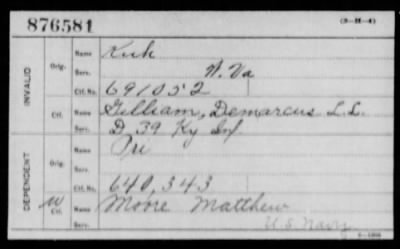 876581
(3-H-4)
INVALID Orig. Name Kirk
Serv. W. Va
Ctf. No. 691052
Ctf. Name Gilliam, Demarcus L.L.
Serv. D, 39 Ky Inf
DEPENDENT Orig. Name Pri
Serv.
Ctf. No. 640,343
W Ctf. Name Moore Matthew
Serv. U.S. Navy